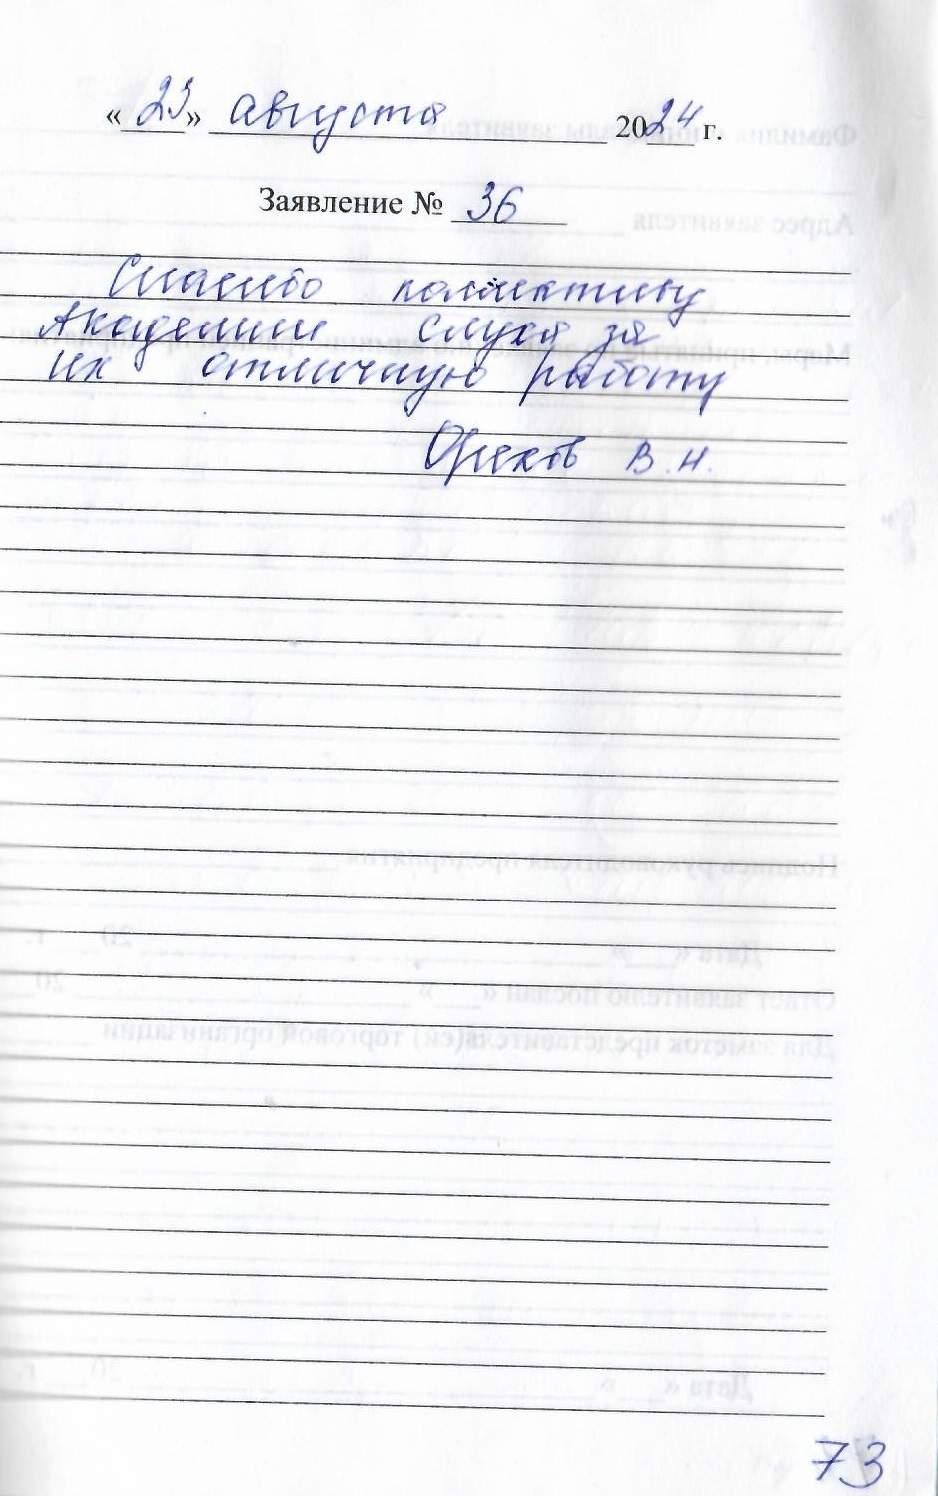 «23» августа 2024 г.
Заявление № 36
Спасибо коллективу
Академии слуха за
их отличную работу
Орехов В.Н.
73